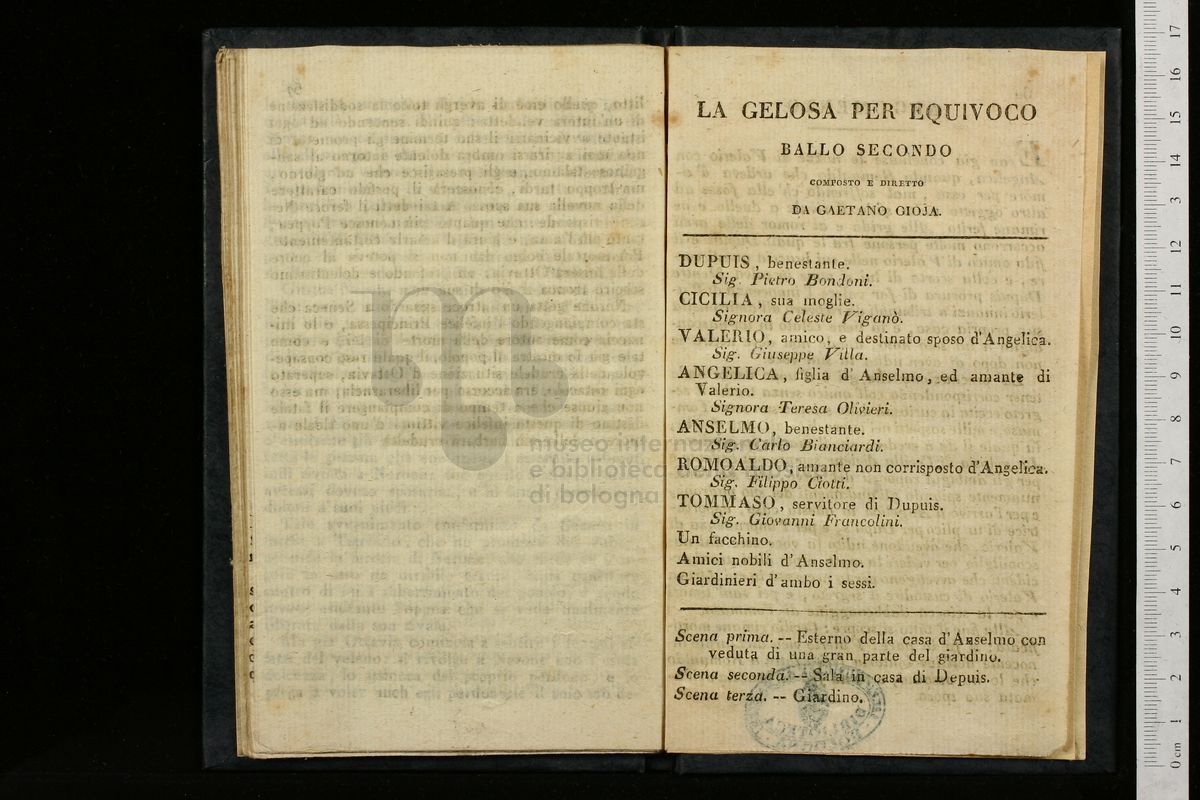 LA GELOSA PER EQUIVOCO
BALLO SECONDO
COMPOSTO E DIRETTO
DA GAETANO GIOJA.
DUPUIS, benestante.
Sig. Pietro Bondoni.
CICILIA, sua moglie.
Signora Celeste Viganò.
VALERIO, amico, e destinato sposo d'Angelica.
Sig. Giuseppe Villa.
ANGELICA, figlia d'Anselmo, ed amante di
Valerio.
Signora Teresa Olivieri.
ANSELMO, benestante.
Sig. Carlo Bianciardi.
ROMOALDO, amante non corrisposto d'Angelica.
Sig. Filippo Ciotti.
TOMMASO, servitore di Dupuis.
Sig. Giovanni Francolini.
Un facchino.
Amici nobili d'Anselmo.
Giardinieri d'ambo i sessi.
Scena prima. -- Esterno della casa d'Anselmo con
veduta di una gran parte del giardino.
Scena seconda. -- Sala in casa di Depuis.
Scena terza. -- Giardino.
museo internaz
e biblioteca della
di bologna
0 cm 1 2 3 4 5 6 7 8 9 10 11 12 13 14 15 16 17